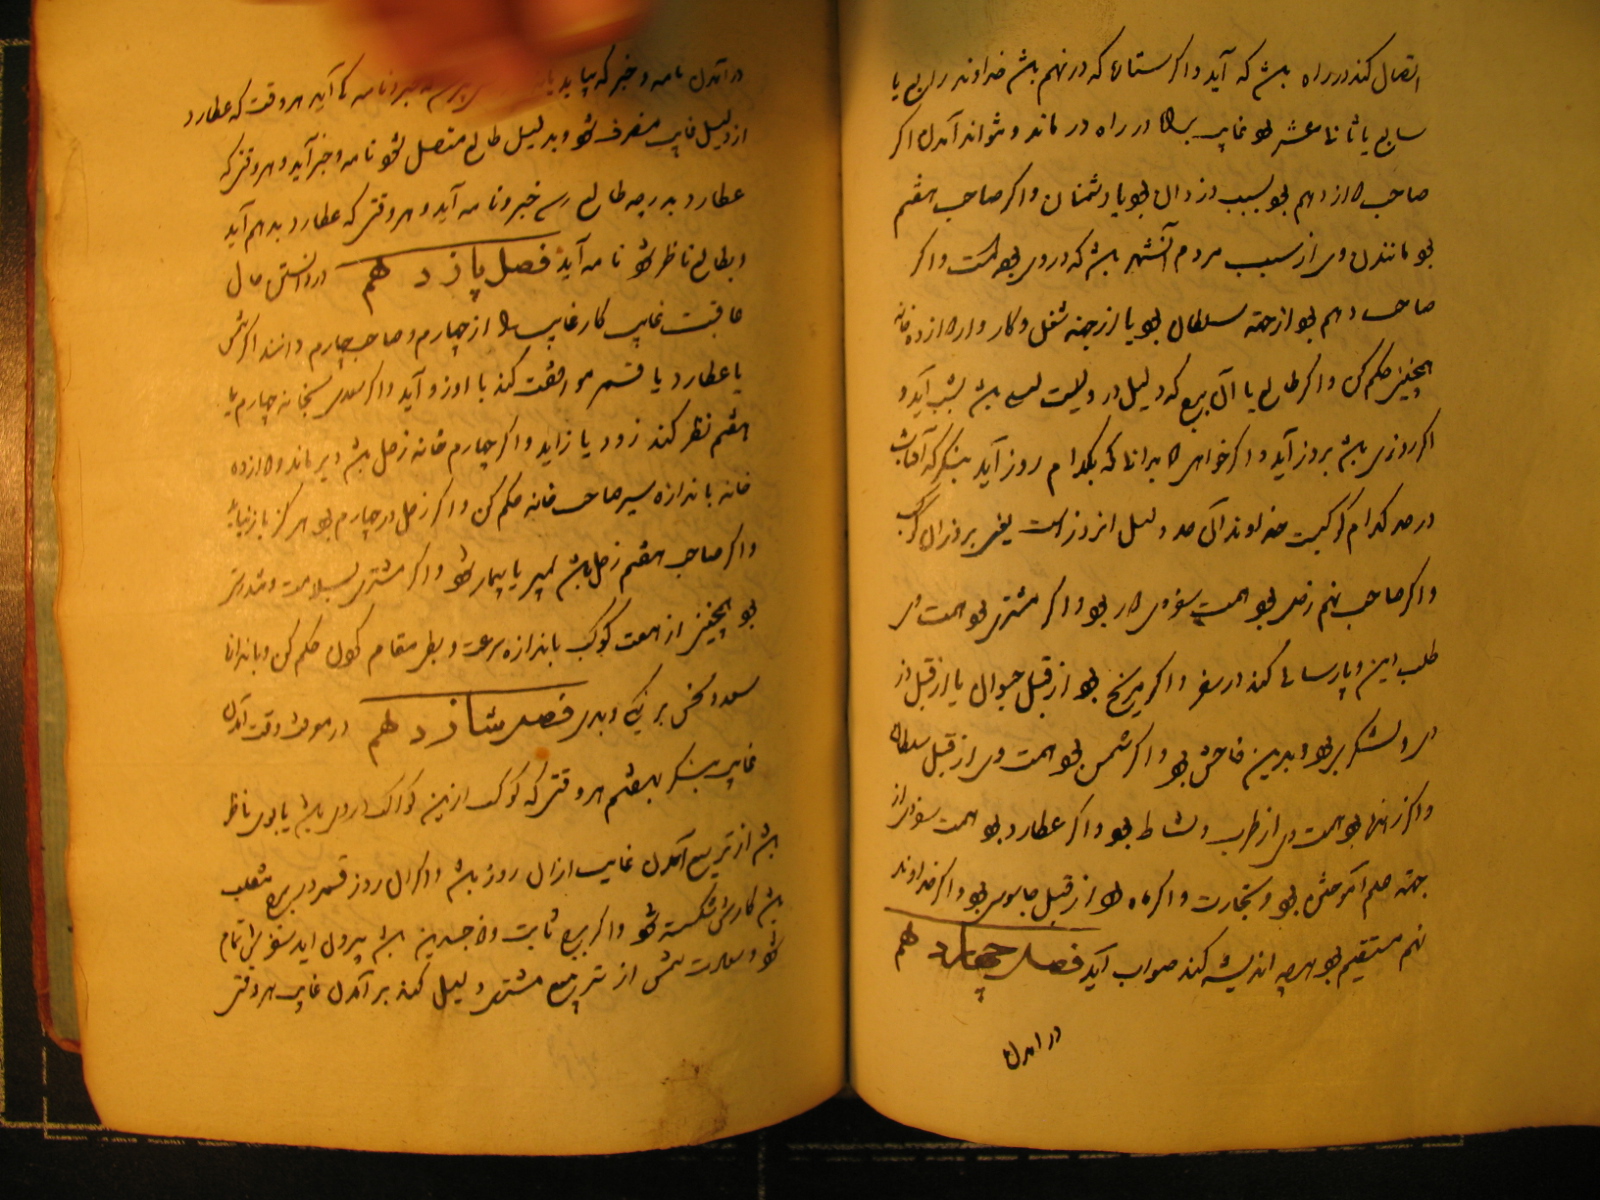 اتصال کند در راه باشد که آید واکر ستاره که در نهم باشد خداوند رابع یا
سابع یا ثانی عشر بود غایب را در راه در ماند و نتواند آمدن اکر
صاحب دوازدهم بود بسبب دزدان بود یا دشمنان واکر صاحب هفتم
بود ماندن وی از سبب مردم آنشهر باشد که در وی بوده است واکر
صاحب دهم بود از جهة سلطان بود یا از جهة شغل و کار و از دوازده خانه
همچنین حکم کن واکر طالع یا آن برج که دلیل در ویست لیلی باشد بشب آید و
اکر روزی باشد بروز آید واکر خواهی که بدانی که بکدام روز آید بنکر که آفتاب
در حد کدام کوکبست خداوند آن حد دلیل انروز است یعنی بروز آن کوکب
واکر صاحب نهم زحل بود همت سفر وی بود واکر مشتری بود همت وی
طلب دین و پارسائی کند در سفر واکر مریخ بود از قبل یا از قبل
ولشکری بود و بدین فاحش بود واکر شمس بود همت وی از قبل سلطان
واکر زهره بود همت وی از طرب و نشاط بود واکر عطارد بود همت سفر وی از
جهة علم آموختن بود و تجارت واکر ماه بود از قبل جاسوسی بود واکر خداوند
نهم مستقیم بود هرچه اندیشه کند صواب آید فصل چهاردهم
در امدن
در آمدن نامه و خبر که بیاید خبر و نامه کی آید هر وقت که عطارد
از دلیل غایب منصرف شود و بدلیل طالع متصل شود نامه و خبر آید و هر وقتی که
عطارد بدرجه طالع رسد خبر و نامه آید و هر وقتی که عطارد بدهم آید
و بطالع ناظر شود نامه آید فصل پانزدهم در دانستن حال
عاقبت غایب کار غایب را از چهارم و صاحب چهارم دانند اکر شمس
یا عطارد یا قمر موافقت کند با او زود آید واکر سعدی بخانه چهارم یا
هفتم نظر کند زود باز آید واکر چهارم خانه زحل باشد دیر ماند و از دوازده
خانه باندازه سیر صاحب خانه حکم کن واکر زحل در چهارم بود هرکز باز نیاید
واکر صاحب هفتم زحل باشد بمیرد یا بیمار شود واکر مشتری بسلامت و تندرستی
بود همچنین از هفت کوکب باندازه سرعت و بطی مقام کون حکم کن و باندازه
سعد و نحس بر نیکی و بدی فصل شانزدهم در معرفت وقت آمدن
غایب بنکر بهفتم هر وقتی که کوکب ازین کواکب در وی باشد یا بوی ناظر
باشد از تربیع آمدن غایب از آن روز باشد واکر آن روز قمر در برج منقلب
باشد کارش شکسته شود واکر برج ثابت و ذو جسدین باشد بیرون آید سفرش تمام
شود و سعادت شمس از تربیع مشتری دلیل کند بر آمدن غایب هر وقتی